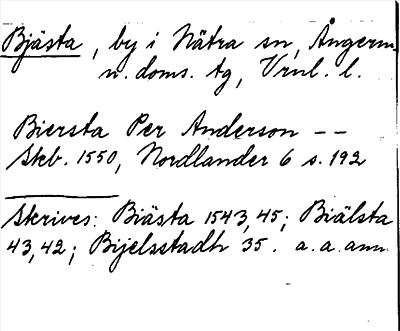 Bjästa, by i Nätra sn, Ångerm.
n. doms. tg, Vrnl. l.
Biersta Per Anderson --
Skb. 1550, Nordlander 6 s. 192
Skrives: Biästa 1543, 45; Biälsta
43, 42; Bijelsstadh 35. a. a. anm